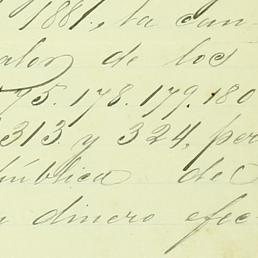 1881, la can
alor de los
75. 178. 179. 180
313 y 324, per
ública de
dinero efec